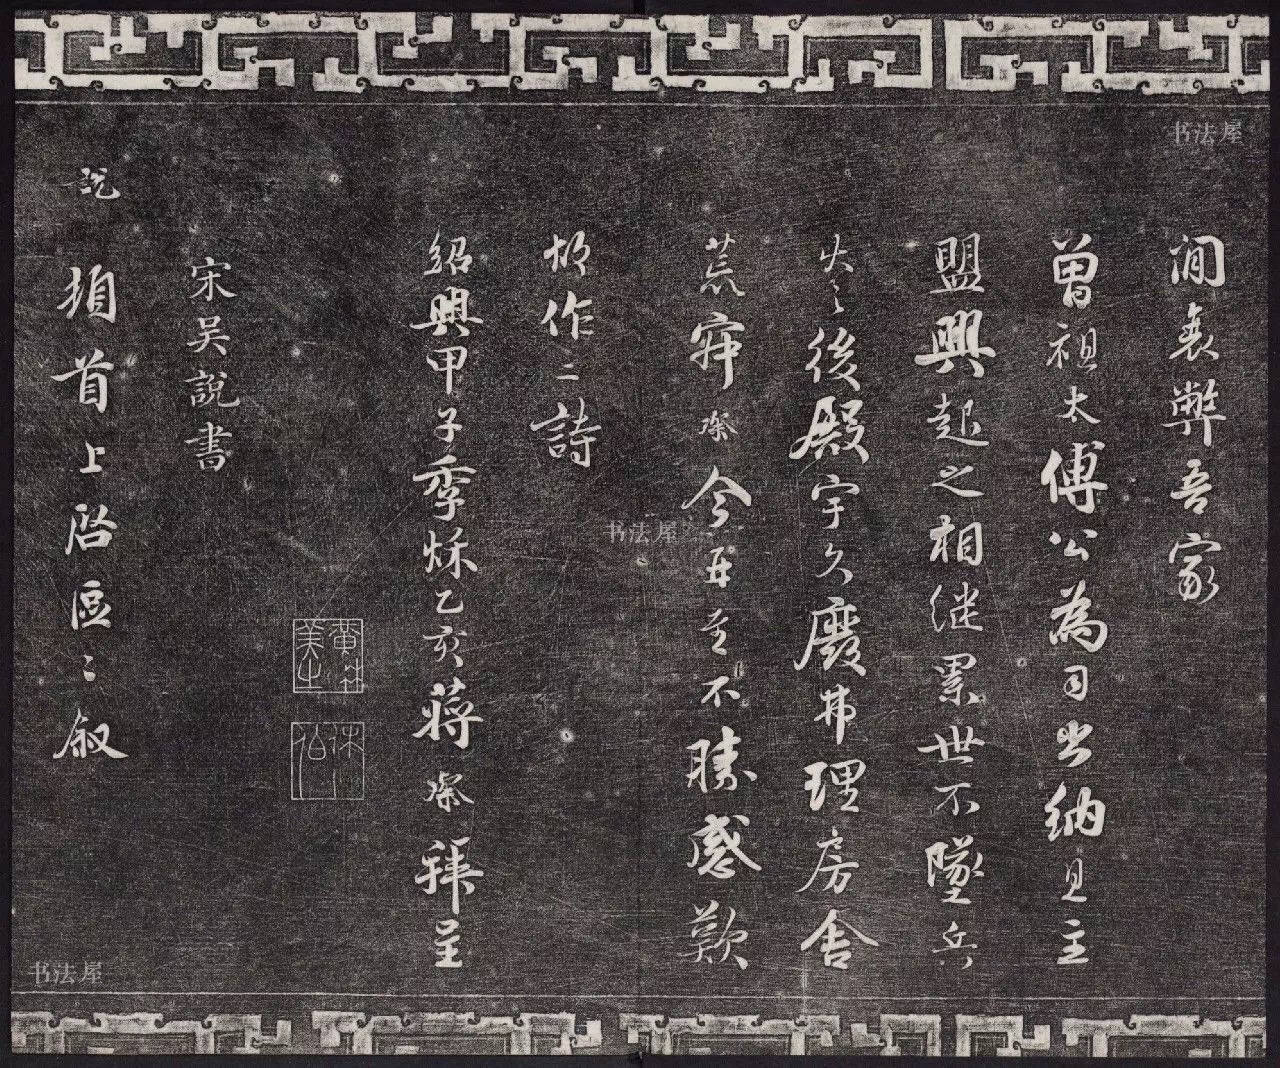 间衰弊吾家
曾祖太傅公為司出納見主
盟興起之相继累世不墜兵
火之後殿宇久廢弗理房舍
荒寂璨今年至不勝感歎
故作二詩
紹興甲子季秋乙亥蔣璨拜呈
宋吴說書
說
頓首上啓區〻叙
书法屋
书法屋
书法屋